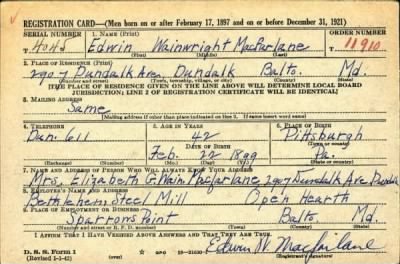 REGISTRATION CARD—(Men born on or after February 17, 1897 and on or before December 31, 1921)
SERIAL NUMBER 1. NAME (Print) ORDER NUMBER
Edwin Wainwright Macfarlane 11910
(First) (Middle) (Last)
2. PLACE OF RESIDENCE (Print)
2907 Dundalk Ave. Dundalk Balto. Md.
(Number and street) (Town, township, village, or city) (County) (State)
[THE PLACE OF RESIDENCE GIVEN ON THE LINE ABOVE WILL DETERMINE LOCAL BOARD
JURISDICTION; LINE 2 OF REGISTRATION CERTIFICATE WILL BE IDENTICAL]
3. MAILING ADDRESS
Same
[Mailing address if other than place indicated on line 2. If same insert word same]
4. TELEPHONE 5. AGE IN YEARS 6. PLACE OF BIRTH
Dun. 611 42 Pittsburgh
DATE OF BIRTH (Town or county)
Feb. 22 1899 Pa.
(Exchange) (Number) (Mo.) (Day) (Yr.) (State or country)
7. NAME AND ADDRESS OF PERSON WHO WILL ALWAYS KNOW YOUR ADDRESS
Mrs. Elizabeth G. Macfarlane 2907 Dundalk Ave Dundalk
8. EMPLOYER'S NAME AND ADDRESS
Bethlehem Steel Mill Open Hearth
9. PLACE OF EMPLOYMENT OR BUSINESS
Sparrows Point Balto. Md.
(Number and street or R. F. D. number) (Town) (County) (State)
I AFFIRM THAT I HAVE VERIFIED ABOVE ANSWERS AND THAT THEY ARE TRUE.
D. S. S. Form 1 Edwin W. Macfarlane